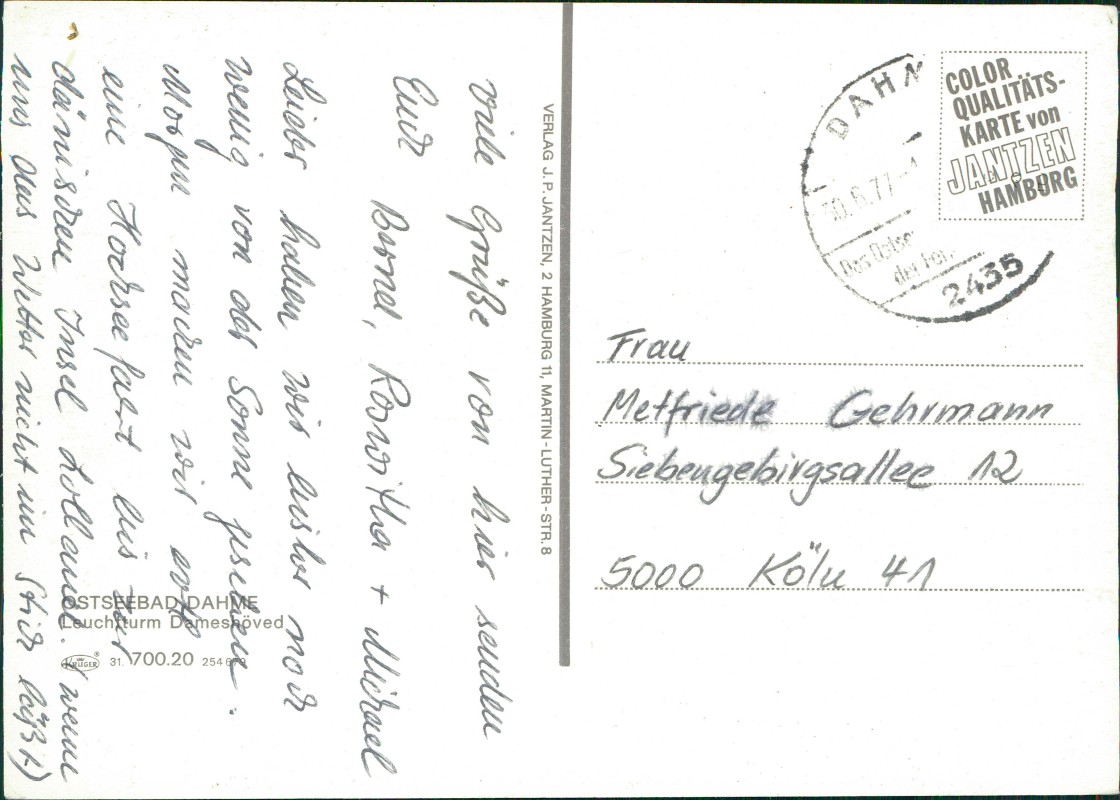 Viele Grüße von hier senden
Euch
Bärbel, Roswitha + Michael
Leider haben wir bisher noch
wenig von der Sonne gesehen.
Morgen machen wir evtl.
eine Hochseefahrt bis zur
dänischen Insel Lolland. (wenn
uns das Wetter nicht im Stich läßt.)
OSTSEEBAD DAHME
Leuchtturm Dameshöved
KRÜGER
31. 700.20 254
VERLAG J. P. JANTZEN, 2 HAMBURG 11, MARTIN-LUTHER-STR. 8
DAHM
30.6.77
Das Ostse
der
2435
COLOR
QUALITÄTS-
KARTE von
JANTZEN
HAMBURG
Frau
Metfriede Gehrmann
Siebengebirgsallee 12
5000 Köln 41